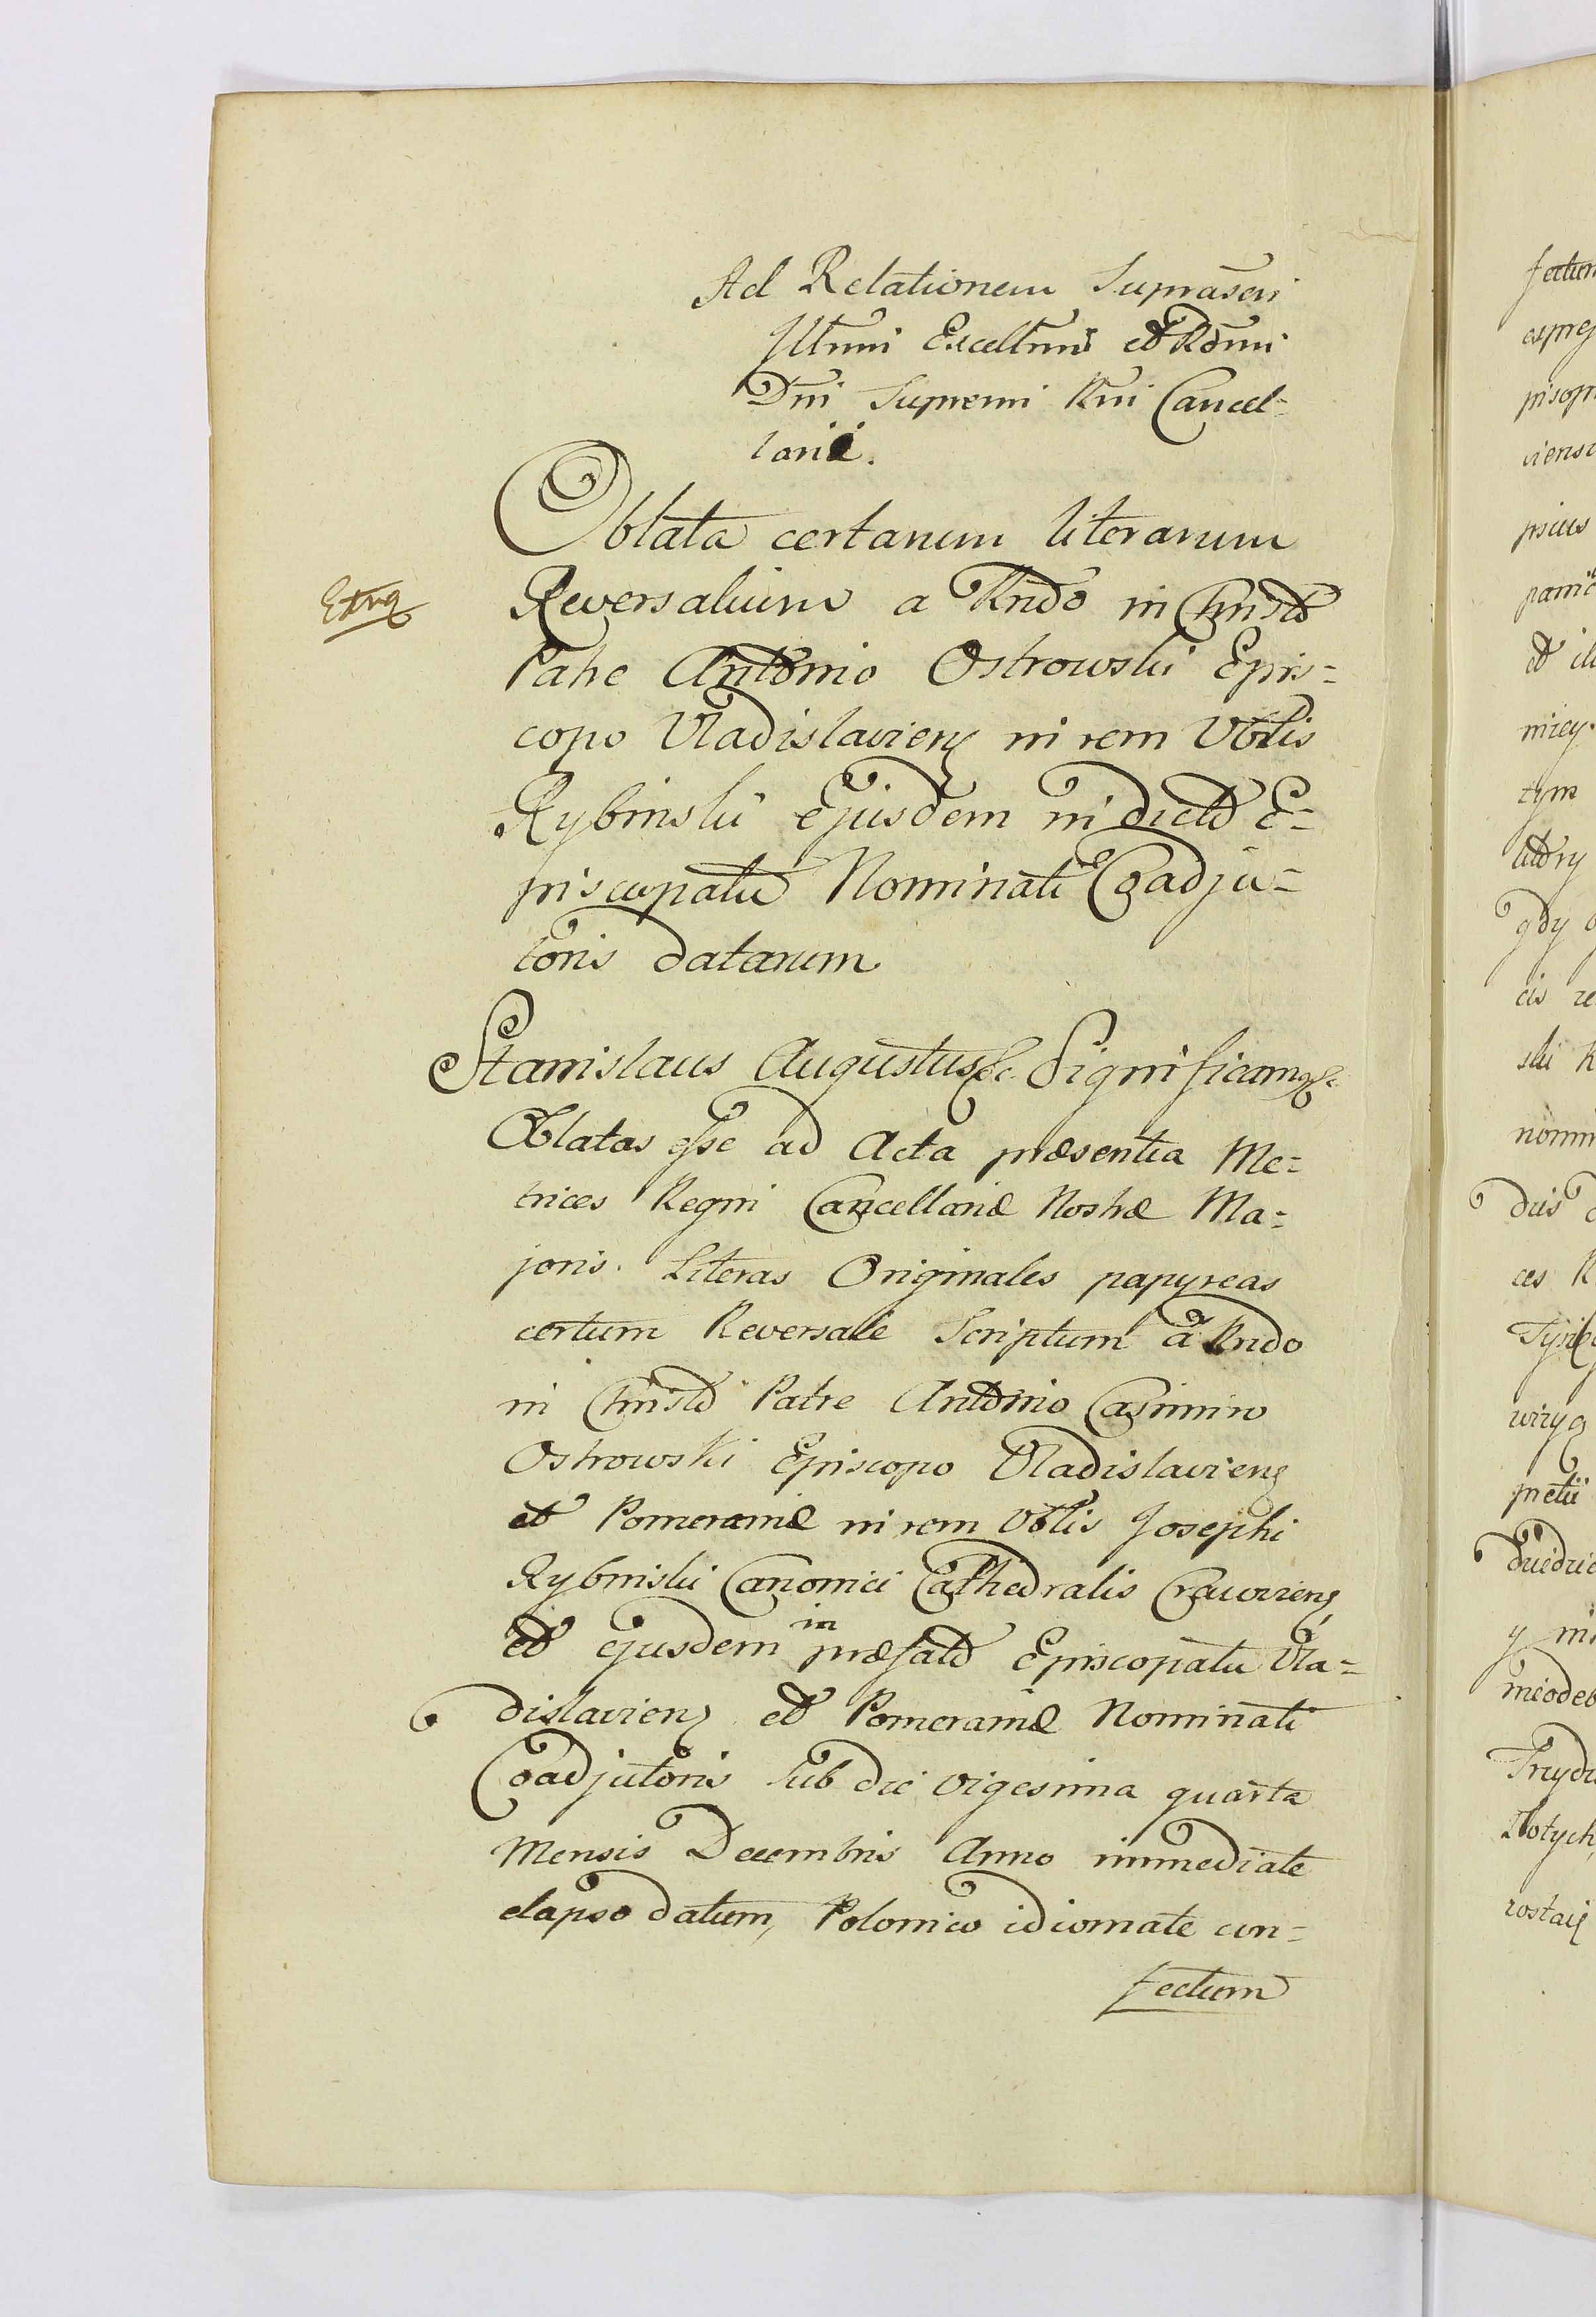 Ad Relationem Suprascri
Illtmi Excellmi et Rdmi
Dni Supremi Rni Cancel=
larii.
Oblata certarum literarum
Extra
Reversalium a Rndo in Christo
Patre Antonio Ostrowski Epis=
copo Vladislavien in rem Vblis
Rybinski ejusdem in dicto E=
piscopatu Nominati Coadju=
toris datarum
Stanislaus Augustus &c. Significamq &c
Oblatas esse ad Acta præsentia Me=
trices Regni Cancellariæ Nostræ Ma=
joris. Literas Originales papyreas
certum Reversale Scriptum à Rndo
in Christo Patre Antonio Casimiro
Ostrowski Episcopo Vladislavien
et Pomeraniæ in rem Vblis Josephi
Rybinski Canonici Cathedralis Cracovien
et ejusdem in præfato Episcopatu Vla=
dislavien et Pomeraniæ Nominati
Coadjutoris sub die vigesima quarta
Mensis Decembris Anno immediate
elapso datum, Polonico idiomate con=
fectum